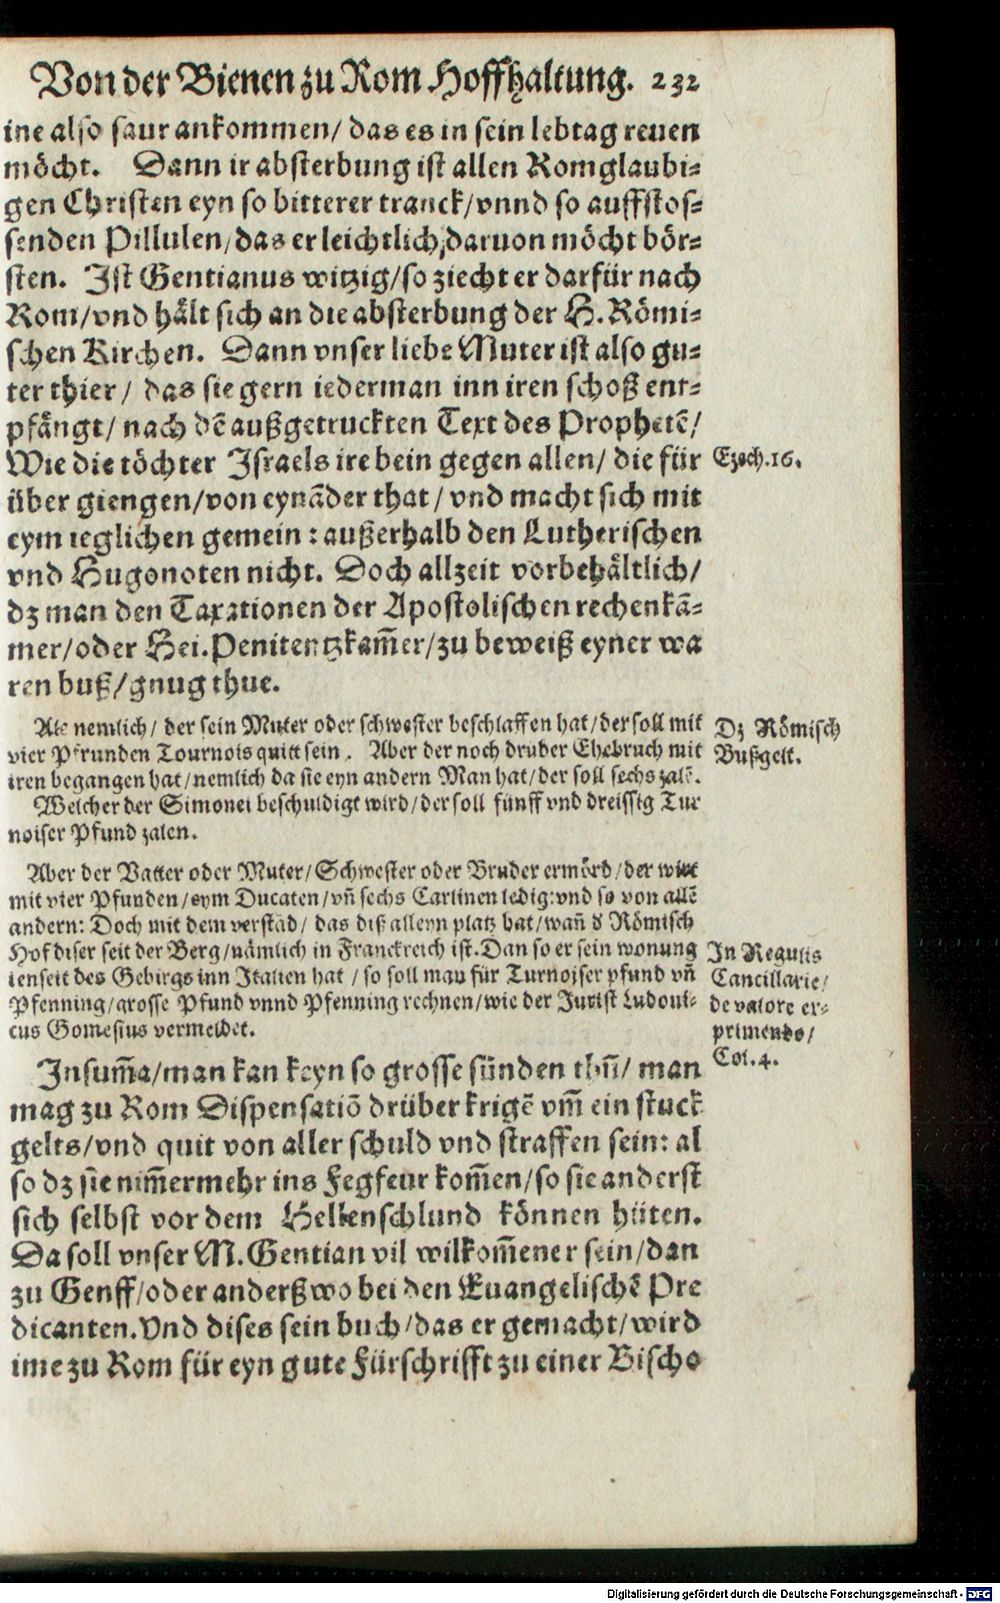 Von der Bienen zu Rom Hoffhaltung. 232
ine also saur ankommen/ das es in sein lebtag reuen
möcht. Dann ir absterbung ist allen Romglaubi=
gen Christen eyn so bitterer tranck/vnnd so auffstos=
senden Pillulen/das er leichtlich daruon möcht bör=
sten. Ist Gentianus witzig/so ziecht er darfür nach
Rom/vnd hält sich an die absterbung der H. Römi=
schen Kirchen. Dann vnser liebe Muter ist also gu=
ter thier/ das sie gern iederman inn iren schoß ent=
pfängt/ nach dē außgetruckten Text des Prophetē/
Wie die töchter Israels ire bein gegen allen/ die für
Ezech.16.
über giengen/von eynāder that/ vnd macht sich mit
eym ieglichen gemein: außerhalb den Lutherischen
vnd Hugonoten nicht. Doch allzeit vorbehältlich/
dz man den Taxationen der Apostolischen rechenkā=
mer/oder Hei.Penitentzkam̄er/zu beweiß eyner wa
ren buß/gnug thue.
Als nemlich/ der sein Muter oder schwester beschlaffen hat/der soll mit
Dz Römisch
vier Pfunden Tournois quitt sein. Aber der noch drüber Ehebruch mit
Bußgelt.
iren begangen hat/nemlich da sie eyn andern Man hat/der soll sechs zalē.
Welcher der Simonei beschuldigt wird/der soll fünff vnd dreissig Tur
noiser Pfund zalen.
Aber der Vatter oder Muter/Schwester oder Bruder ermörd/der wirt
mit vier Pfunden/eym Ducaten/vn̄ sechs Carlinen ledig:vnd so von allē
andern: Doch mit dem verstād/ das diß alleyn platz hat/wan̄ d Römisch
Hof diser seit der Berg/nämlich in Franckreich ist. Dan so er sein wonung
In Regulis
ienseit des Gebirgs inn Italien hat/so soll man für Turnoiser pfund vn̄
Cancillarie/
Pfenning/grosse Pfund vnnd Pfenning rechnen/wie der Jurist Ludoui=
de valore er=
cus Gomesius vermeldet.
primendo/
Col.4.
Insum̄a/man kan keyn so grosse sünden thūn/ man
mag zu Rom Dispensatiō drüber krigē vm̄ ein stuck
gelts/vnd quit von aller schuld vnd straffen sein: al
so dz sie nim̄ermehr ins Fegfeur kom̄en/so sie anderst
sich selbst vor dem Hellenschlund können hüten.
Da soll vnser M. Gentian vil wilkom̄ener sein/dan
zu Genff/oder anderßwo bei den Euangelischē Pre
dicanten. Vnd dises sein buch/das er gemacht/wird
ime zu Rom für eyn gute Fürschrifft zu einer Bischo
Digitalisierung gefördert durch die Deutsche Forschungsgemeinschaft - DFG